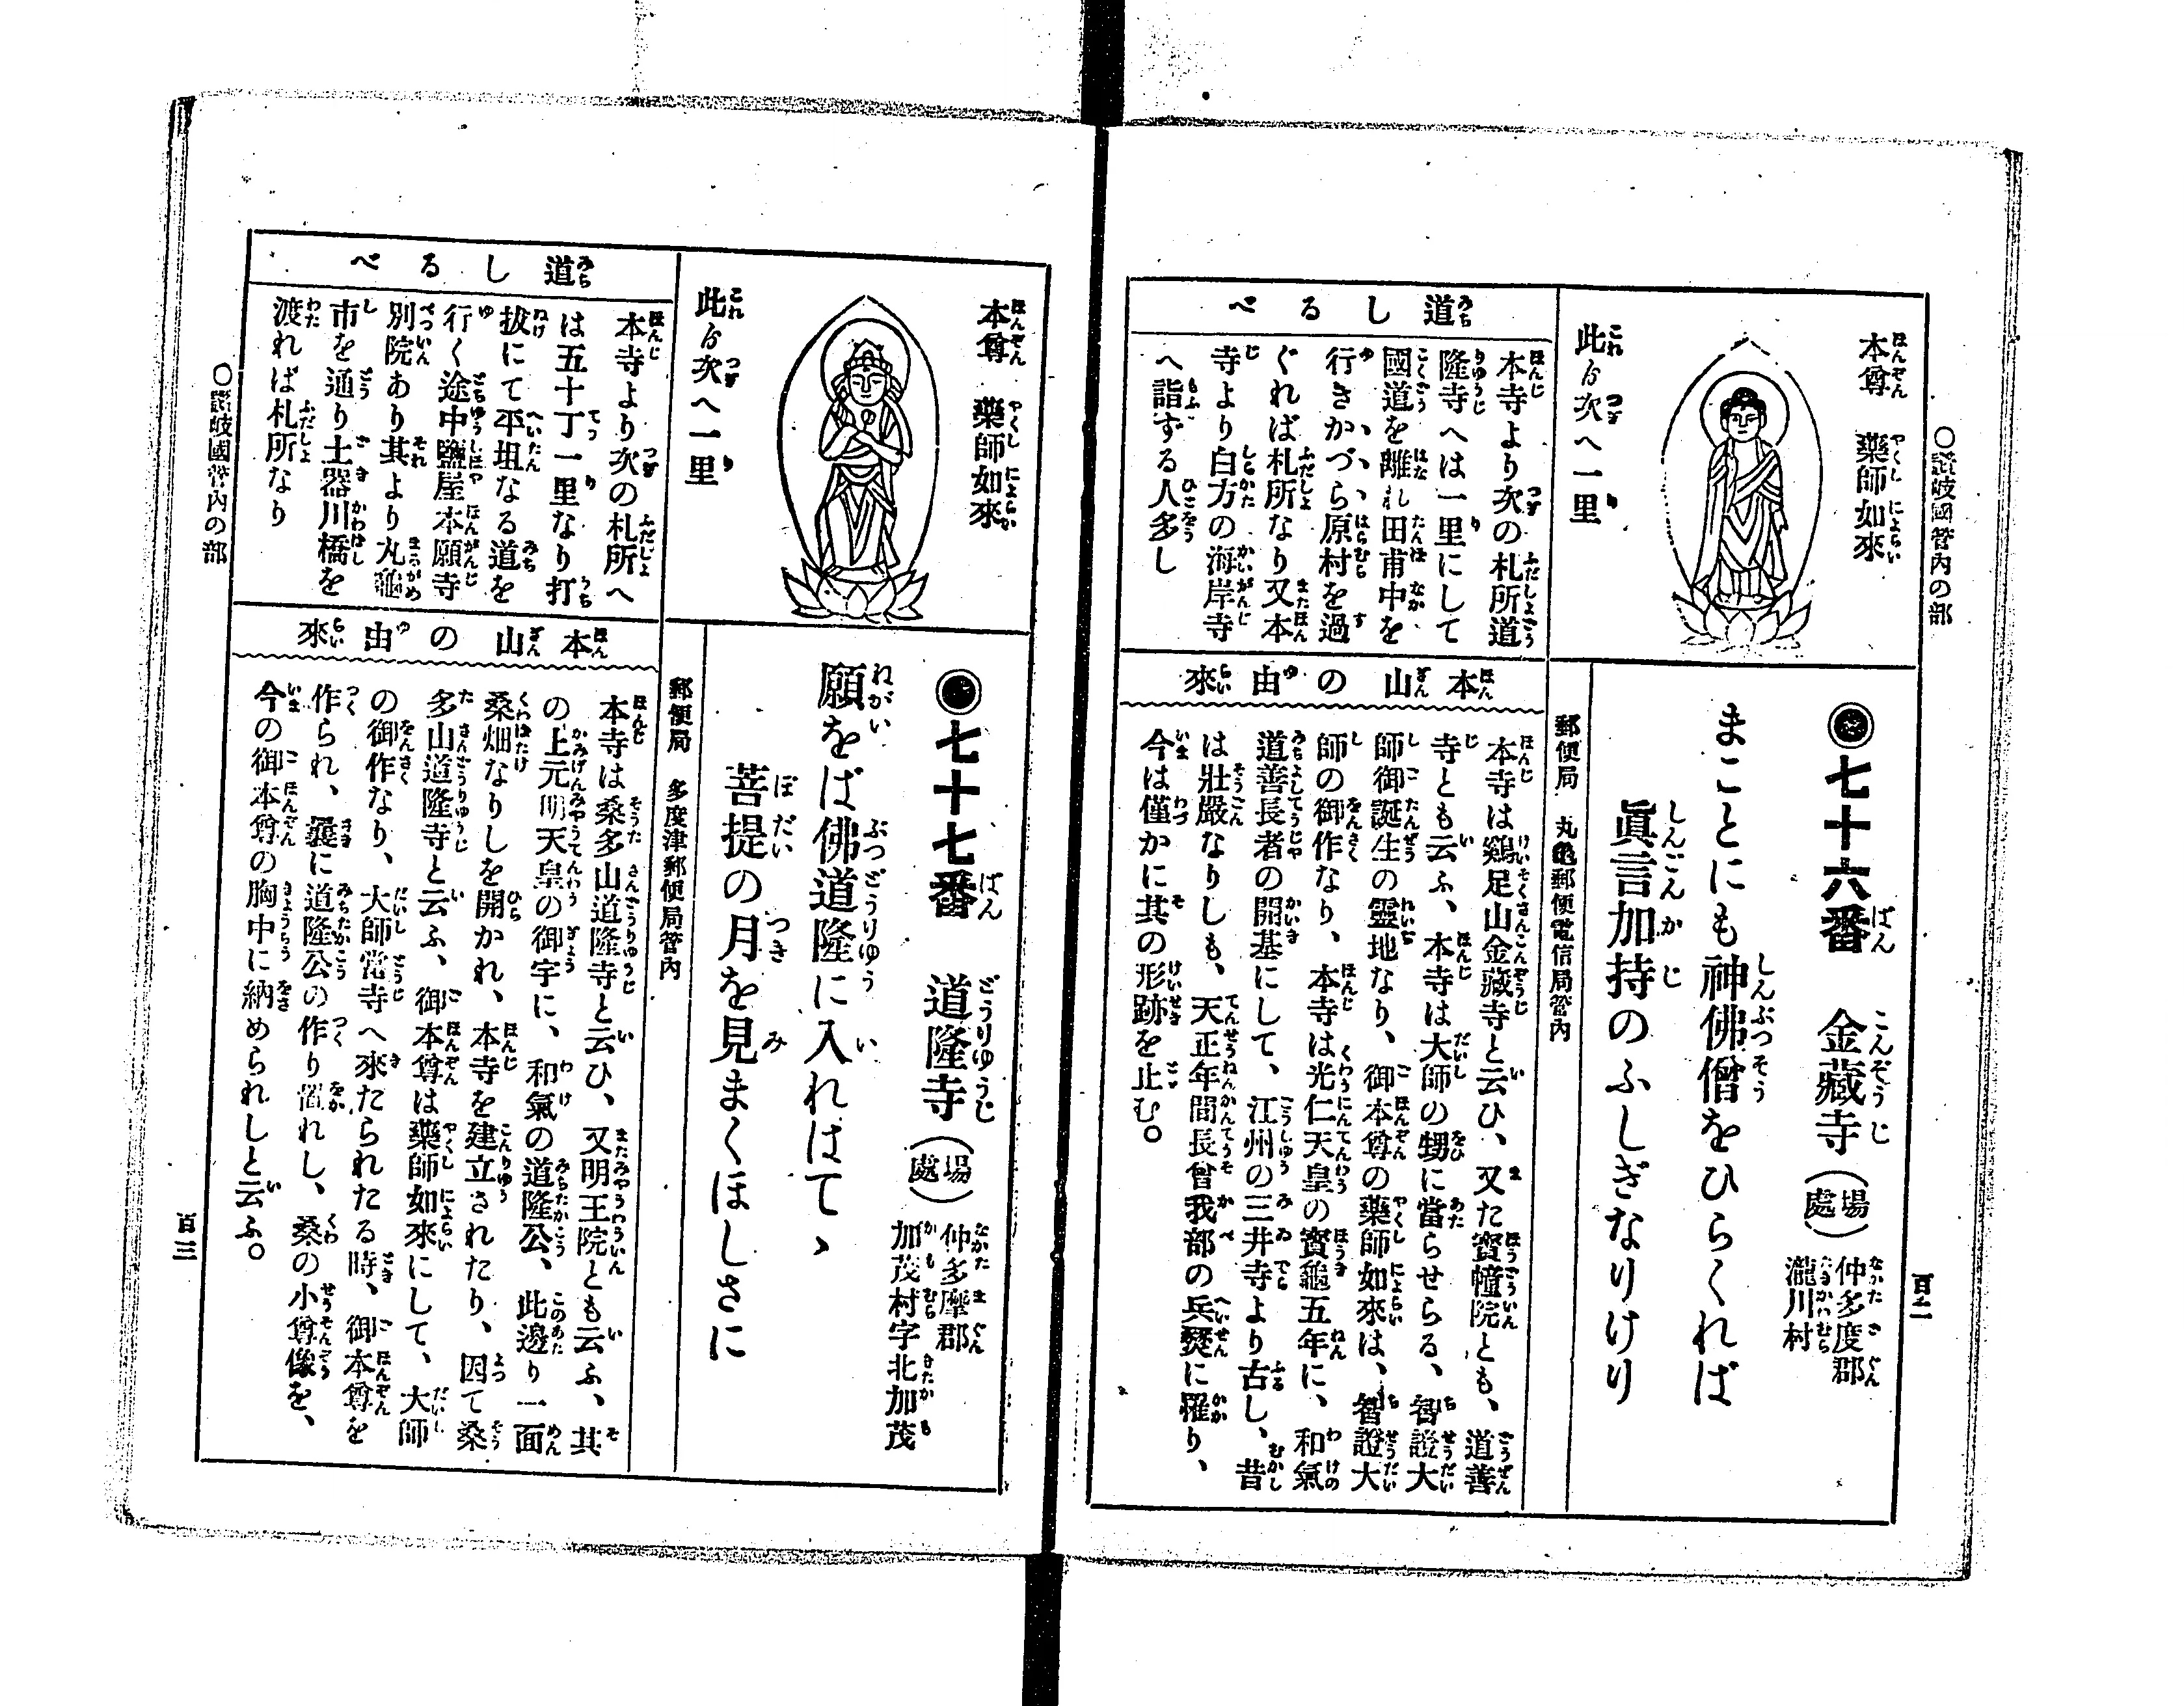 〇讃岐國管內の部
百二
本尊　藥師如來
此ゟ次へ一里
◉七十六番　金藏寺（場處）仲多度郡
瀧川村
まことにも神佛僧をひらくれば
眞言加持のふしぎなりけり
郵便局　丸龜郵便電信局管內
道しるべ
本寺より次の札所道
隆寺へは一里にして
國道を離れ田甫中を
行きかづら原村を過
ぐれば札所なり又本
寺より白方の海岸寺
へ詣する人多し
本山の由來
本寺は鷄足山金藏寺と云ひ、又た寳幢院とも、道善
寺とも云ふ、本寺は大師の甥に當らせらる、智證大
師御誕生の靈地なり、御本尊の藥師如來は、智證大
師の御作なり、本寺は光仁天皇の寳龜五年に、和氣
道善長者の開基にして、江州の三井寺より古し、昔
は壯嚴なりしも、天正年間長曾我部の兵燹に罹り、
今は僅かに其の形跡を止む。
本尊　藥師如來
此ゟ次へ一里
◉七十七番　道隆寺（場處）仲多摩郡
加茂村字北加茂
願をば佛道隆に入れはてゝ
菩提の月を見まくほしさに
郵便局　多度津郵便局管內
道しるべ
本寺より次の札所へ
は五十丁一里なり打
拔にて平坦なる道を
行く途中鹽屋本願寺
別院あり其より丸龜
市を通り土器川橋を
渡れば札所なり
本山の由來
本寺は桑多山道隆寺と云ひ、又明王院とも云ふ、其
の上元明天皇の御宇に、和氣の道隆公、此邊り一面
桑畑なりしを開かれ、本寺を建立されたり、因て桑
多山道隆寺と云ふ、御本尊は藥師如來にして、大師
の御作なり、大師當寺へ來たられたる時、御本尊を
作られ、曩に道隆公の作り置れし、桑の小尊像を、
今の御本尊の胸中に納められしと云ふ。
〇讃岐國管內の部
百三